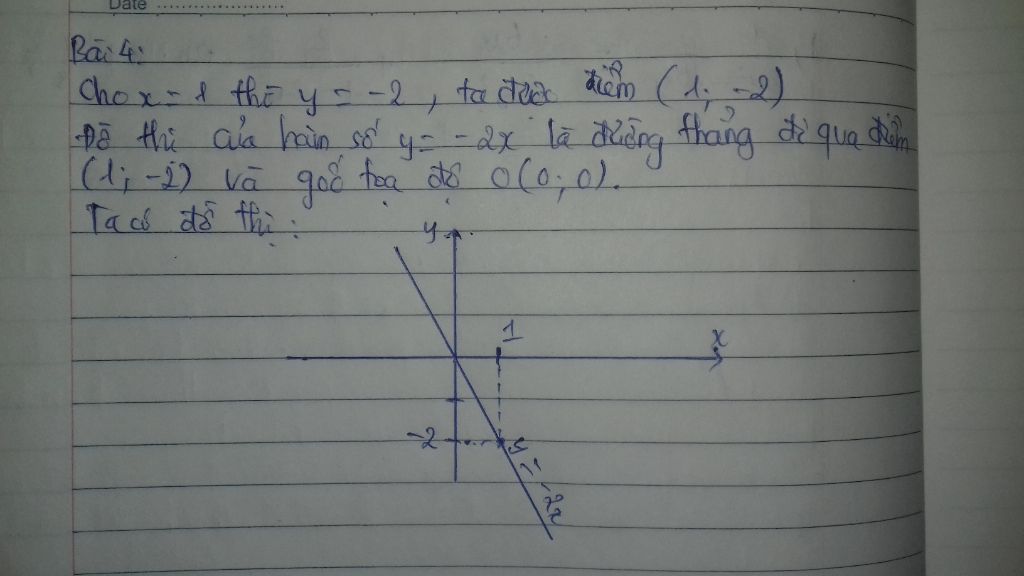 Date ..........................
Bài 4:
Cho x = 1 thì y = -2, ta được điểm (1; -2)
Đồ thị của hàm số y = -2x là đường thẳng đi qua điểm
(1; -2) và gốc tọa độ O(0; 0).
Ta có đồ thị:
y
1
x
-2
y = -2x